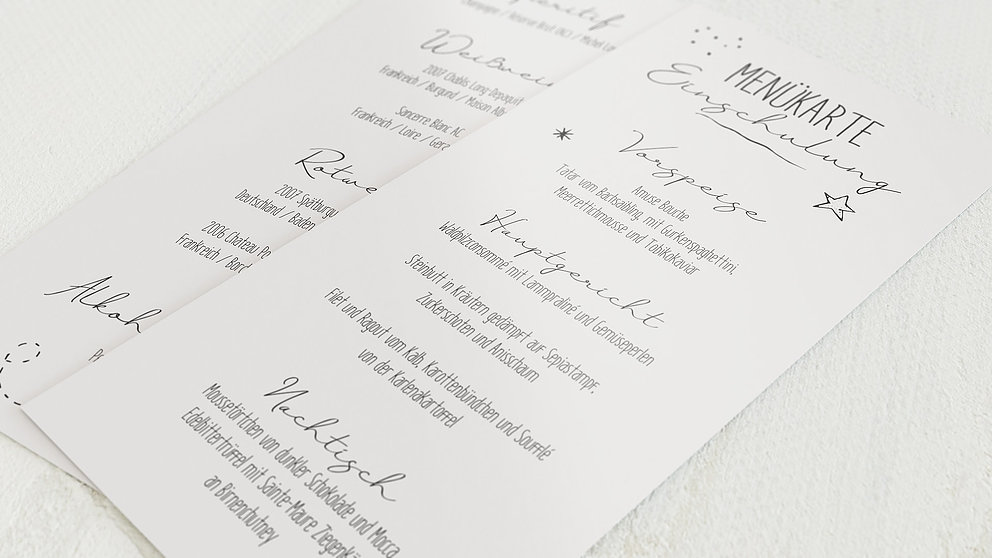 MENÜKARTE
Einschulung
Vorspeise
Amuse Bouche
Tatar vom Bachsaibling mit Gurkenspaghettini,
Meerrettichmousse und Tobikokaviar
Hauptgericht
Waldpilzconsommé mit Lammpraliné und Gemüseperlen
Steinbutt in Kräutern gedämpft auf Sepiastampf,
Zuckerschoten und Anisschaum
Filet und Ragout vom Kalb, Karottenbündchen und Soufflé
von der Kartenakartoffel
Nachtisch
Moussetörtchen von dunkler Schokolade und Mocca
Edelbittertrüffel mit Sainte-Maure
an Birnenchutney
Champagne / Reserve Brut (NC) / Michel
2007 Chablis Long Depaquit
Frankreich / Burgund / Maison
Sancerre Blanc AC
Frankreich / Loire /
2007
Deutschland / Baden
2006 Chateau
Frankreich /